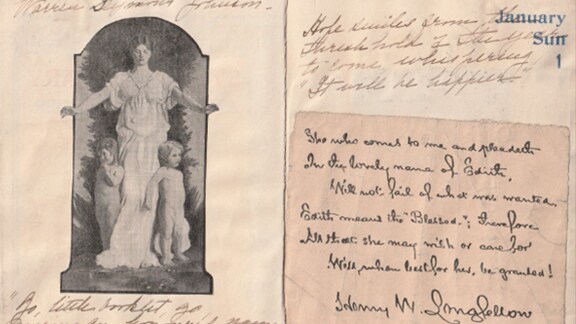 Warren Symons Johnson.
"Go, little booklet, go
Hope smiles from the
threshold of the year
to come whispering
"It will be happier"
January
Sun
1
She who comes to me and pleadeth
In the lovely name of Edith,
Will not fail of what was wanted.
Edith means the "Blessed."; therefore
All that she may wish or care for
Will, when best for her, be granted!
Henry W. Longfellow